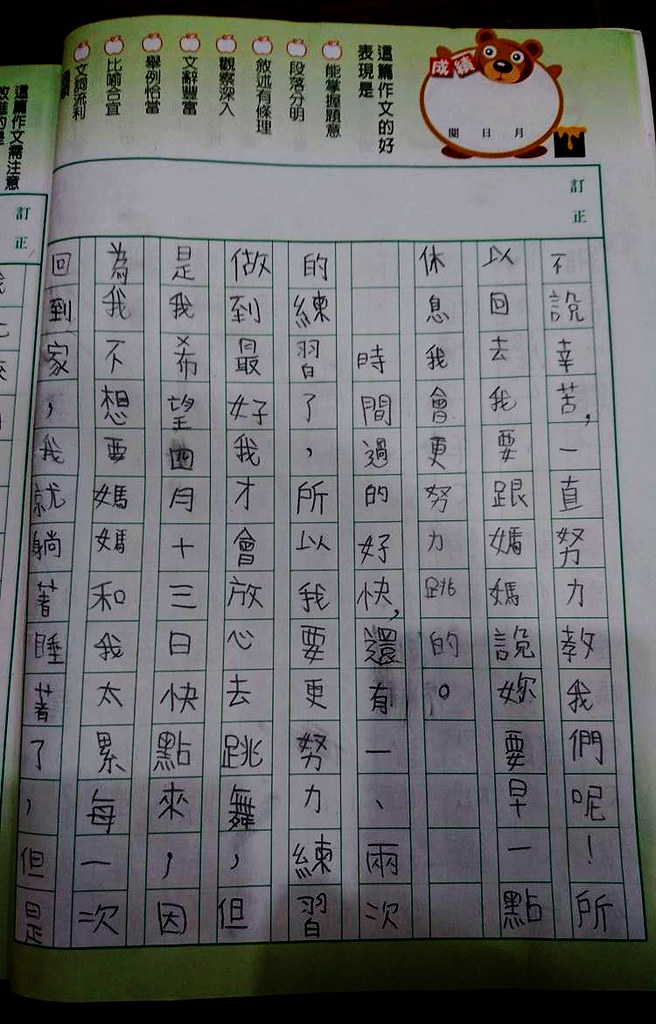 成績
閱 日 月
這篇作文的好
表現是
能掌握題意
段落分明
敘述有條理
觀察深入
文辭豐富
舉例恰當
比喻合宜
文詞流利
這篇作文需注意
訂正
訂正
不說辛苦,一直努力教我們呢!所
以回去我要跟媽媽說妳要早一點
休息我會更努力跳的。
時間過的好快,還有一、兩次
的練習了,所以我要更努力練習
做到最好我才會放心去跳舞,但
是我希望四月十三日快點來,因
為我不想要媽媽和我太累每一次
回到家,我就躺著睡著了,但是